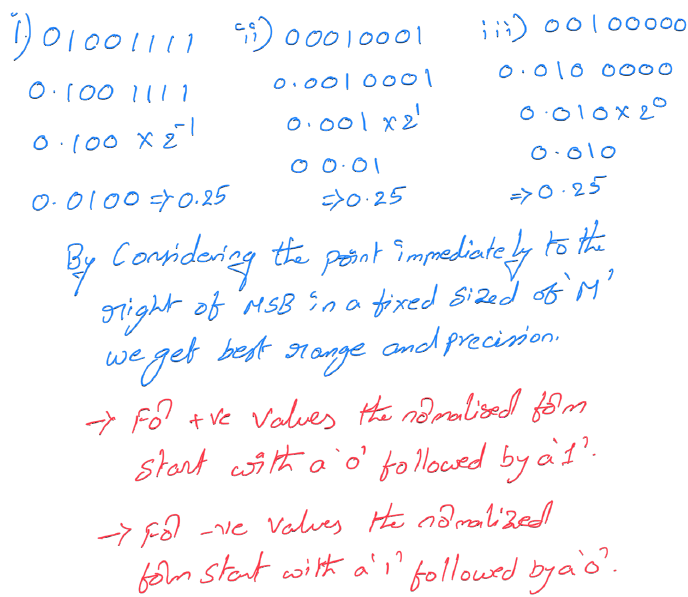 i) 01001111 ii) 00010001 iii) 00100000
0.100 1111 0.001 0001 0.010 0000
0.100 x 2^-1 0.001 x 2^1 0.010 x 2^0
0.0100 => 0.25 00.01 0.010
=> 0.25 => 0.25
By Considering the point immediately to the
right of MSB in a fixed sized of 'M'
we get best range and precision.
→ For +ve values the normalised form
start with a '0' followed by a '1'.
→ For -ve values the normalized
form start with a '1' followed by a '0'.